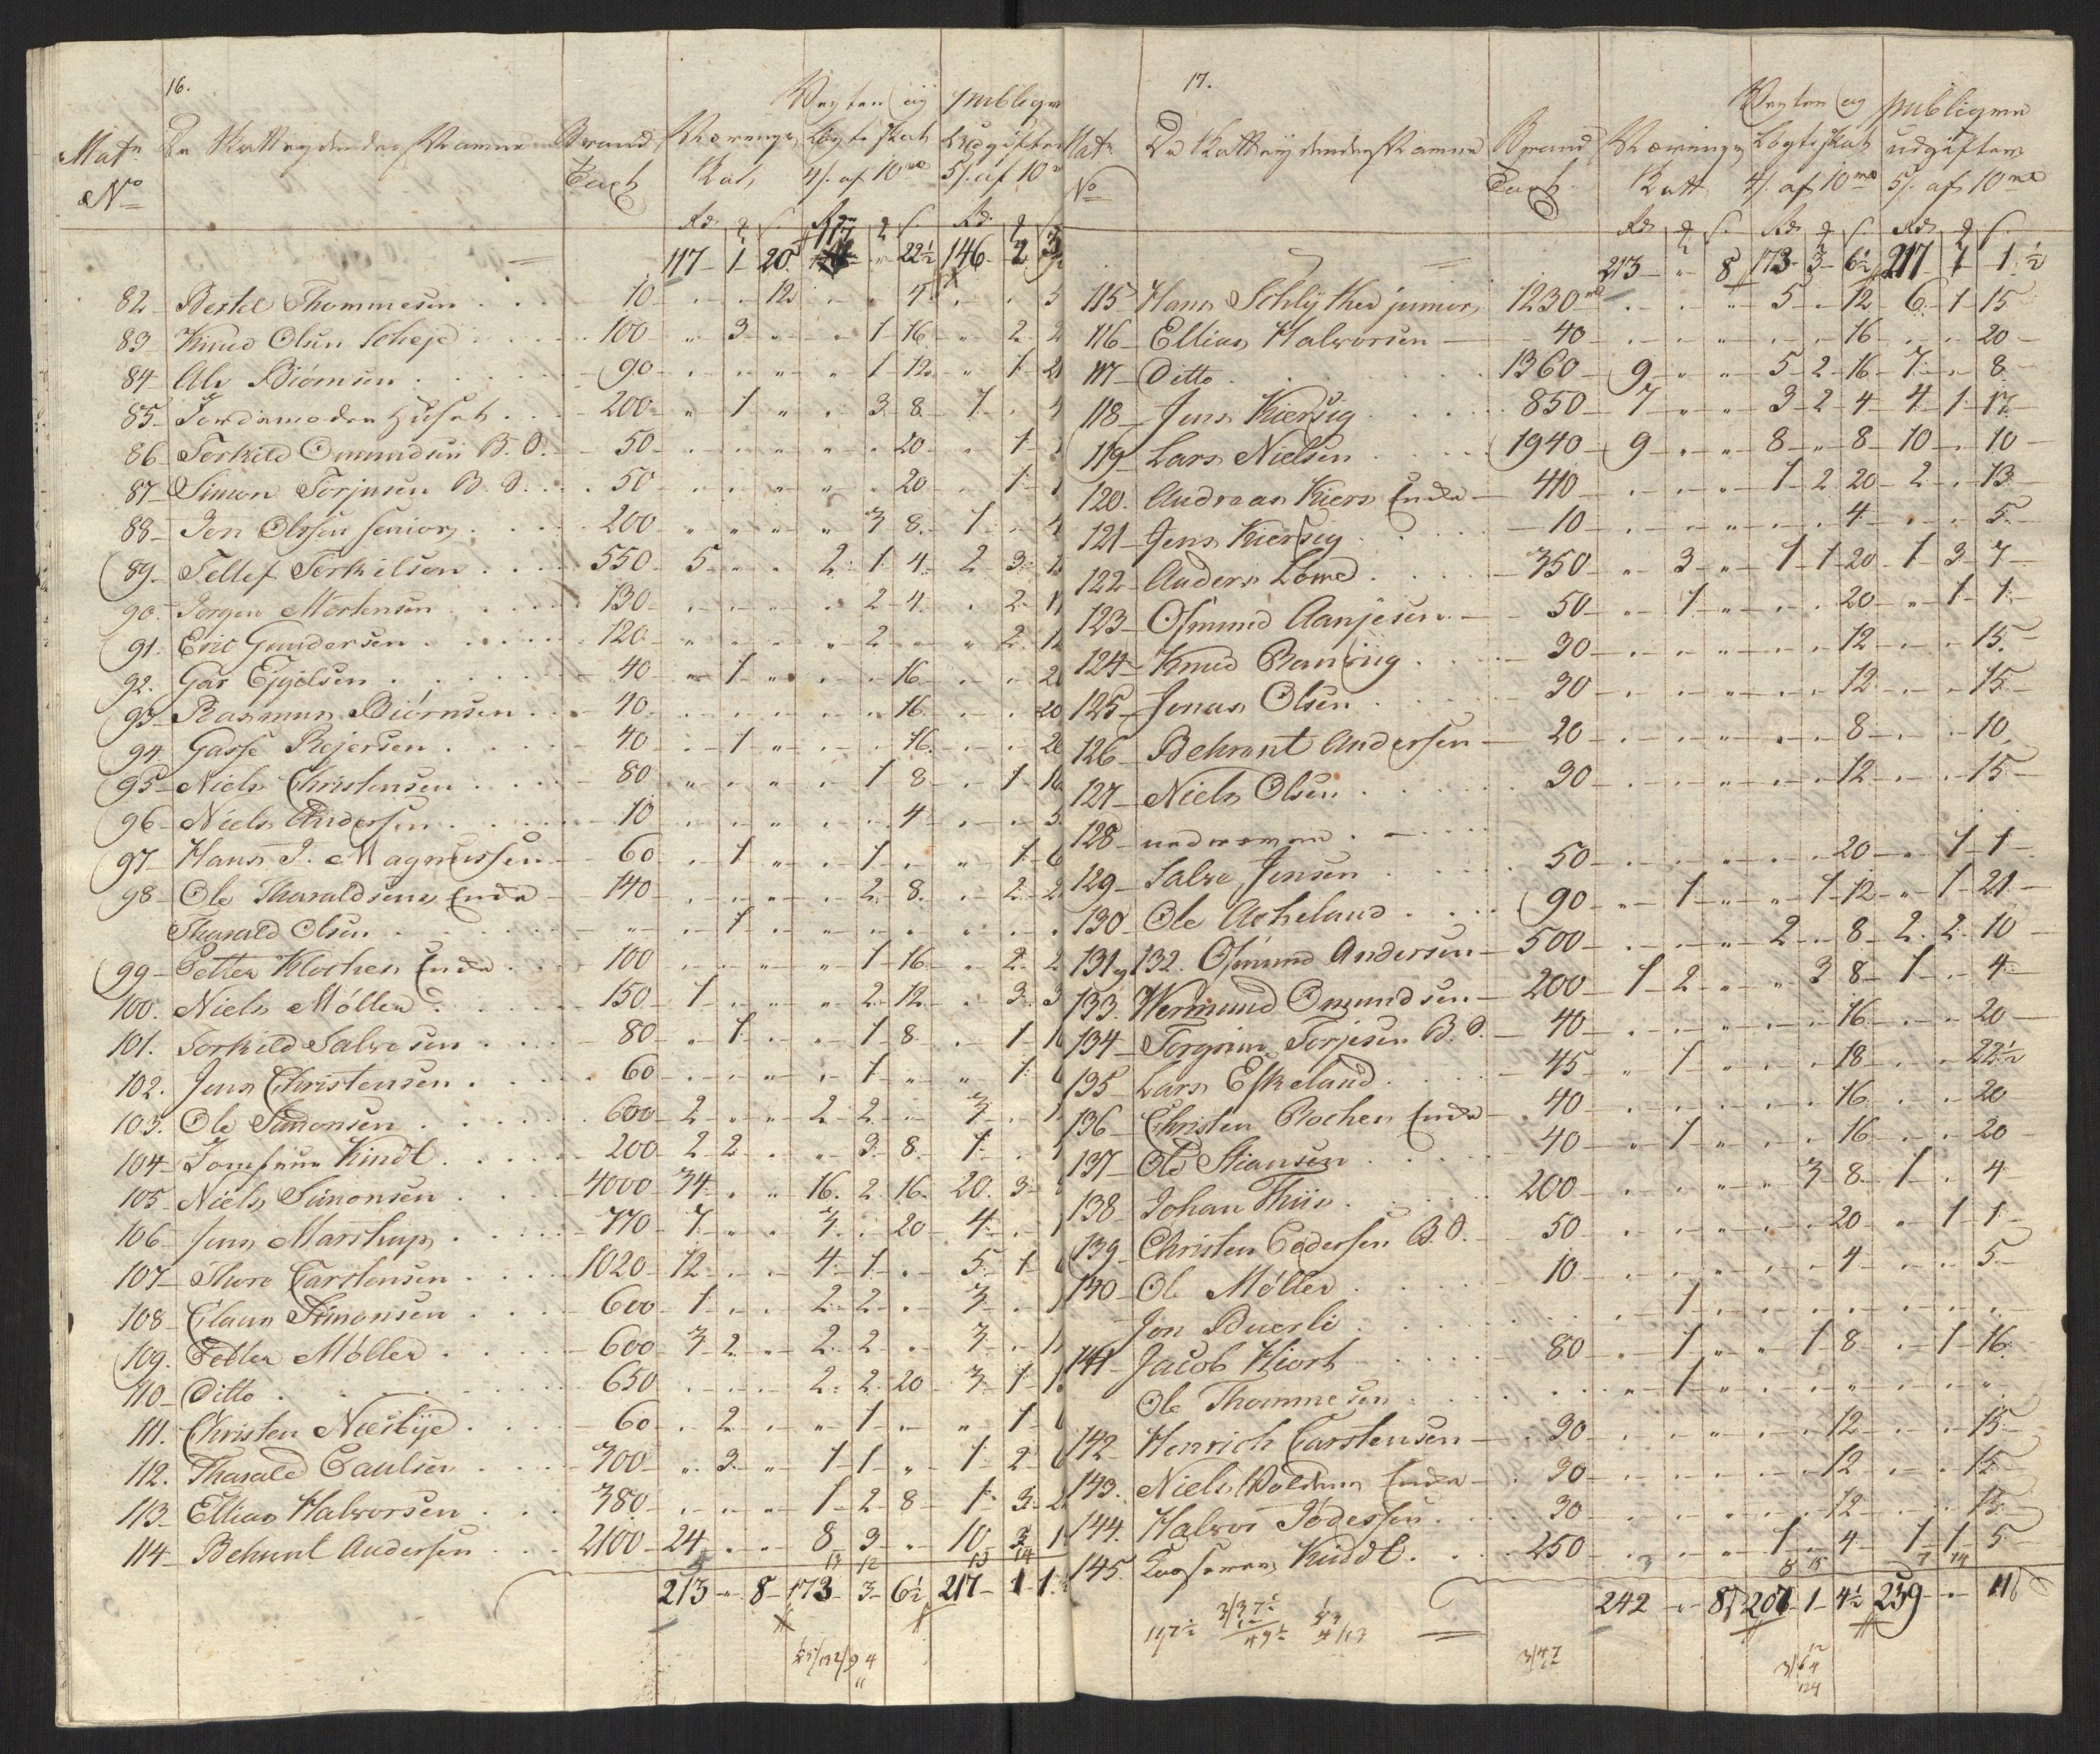 16.
Matr De Skatteydendes Navne Brand Nærings Vægter og publique
No Taxt Skat Løgte Skat Udgifter
4 s. af 10 5 s. af 10
Rd s. Rd s. Rd
117 1 20 117 " 22½ 146 2
82 Bertel Thommesen 10 12 4 5
83 Knud Olsen Scheje 100 " 3 " 1 16 " 2 2
84 Ole Biörnsen 90 1 12 " 1 21
85 200 " 1 " 3 8 1 4
86 Torkild Omundsen B. O. 50 20 1
87 Simon Torjusen B. O. 50 20 1
88 Jon Olssen senior 200 3 8 1 4
89 Tellef Terkilsen 550 5 2 1 4 2 3 2
90 Jørgen Mortensen 130 2 4 2
91 Eric Gundersen 120 2 2 12
92 Gar Ejyelsen 40 1 16 2
93 Rasmus Biörnsen 40 16 20
94 Gasse Rejersen 40 1 16 20
95 Niels Christensen 80 1 8 1 16
96 Niels Andersen 10 4 5
97 Hans J. Magnussen 60 1 1 1 6
98 Ole Tharaldsens Enke 140 2 8 2 2
Tharald Olsen 1
99 Petter Klochers Enke 100 1 16 2 2
100 Niels Møller 150 1 2 12 3 3
101 Torkild Salvesen 80 1 1 8 1 16
102 Jens Christensen 60 1 1 6
103 Ole Simonsen 600 2 2 2 3
104 Jomfrue Kindt 200 2 2 3 8 1
105 Niels Simonsen 4000 34 16 2 16 20 3
106 Jens Marstrup 770 7 3 20 4
107 Thore Carstensen 1020 12 4 1 5 1
108 Claus Simonsen 600 1 2 2 3
109 Petter Møller 600 3 2 2 2 3
110 Ditto 650 2 2 20 3 1
111 Christen Næsbye 60 2 1 1 6
112 Tharald Paulsen 300 3 1 1 1 2 6
113 Ellias Halvorsen 380 1 2 8 1 3 2
114 Behrent Andersen 2100 24 8 3 10 3
213 " 8 173 3 6½ 217 1 1½
17.
Matr De Skatteydendes Navne Brand Nærings Vægter og publique
No Taxt Skatt Løgte Skat udgifter
4 s. af 10 5 s. af 10
Rd s. Rd s. Rd s.
213 " 8 173 3 6½ 217 1 1½
115 Hans Schlÿtter junior 1230 5 12 6 1 15
116 Ellias Halvorsen 40 16 20
117 Ditto 1360 9 5 2 16 7 8
118 Jens Kiersig 850 7 3 2 4 4 1 17
119 Lars Nielsen 1940 9 8 8 10 10
120 Andreas Kiers Enke 410 1 2 20 2 13
121 Jens Kiersig 10 4 5
122 Anders Lomed 350 3 1 1 20 1 3 7
123 Osmund Aanjesen 50 1 20 1 1
124 Knud 30 12 15
125 Jonas Olsen 30 12 15
126 Behrent Andersen 20 8 10
127 Niels Olsen 30 12 15
128
129 Salve Jensen 50 20 1 1
130 Ole Acheland 90 1 1 12 1 21
131 og 132 Osmund Andersen 500 2 8 2 2 10
133 Wermund Omundsen 200 1 2 3 8 1 4
134 Torgrim Torjesen B. O. 40 16 20
135 Lars Eskeland 45 1 18 22½
136 Christen Enke 40 16 20
137 Ole Stiansen 40 1 16 20
138 Johan Thiis 200 3 8 1 4
139 Christen Pedersen B. O. 50 20 1 1
140 Ole Møller 10 4 5
Jon Buerli 1
141 Jacob Hiort 80 1 1 8 1 16
Ole Thommesen 1
142 Henrich Carstensen 30 12 15
143 Niels Enke 30 12 15
144 Halvor 30 12 15
145 Kindt 250 1 4 1 1 5
242 " 8 207 1 4½ 259 " 11